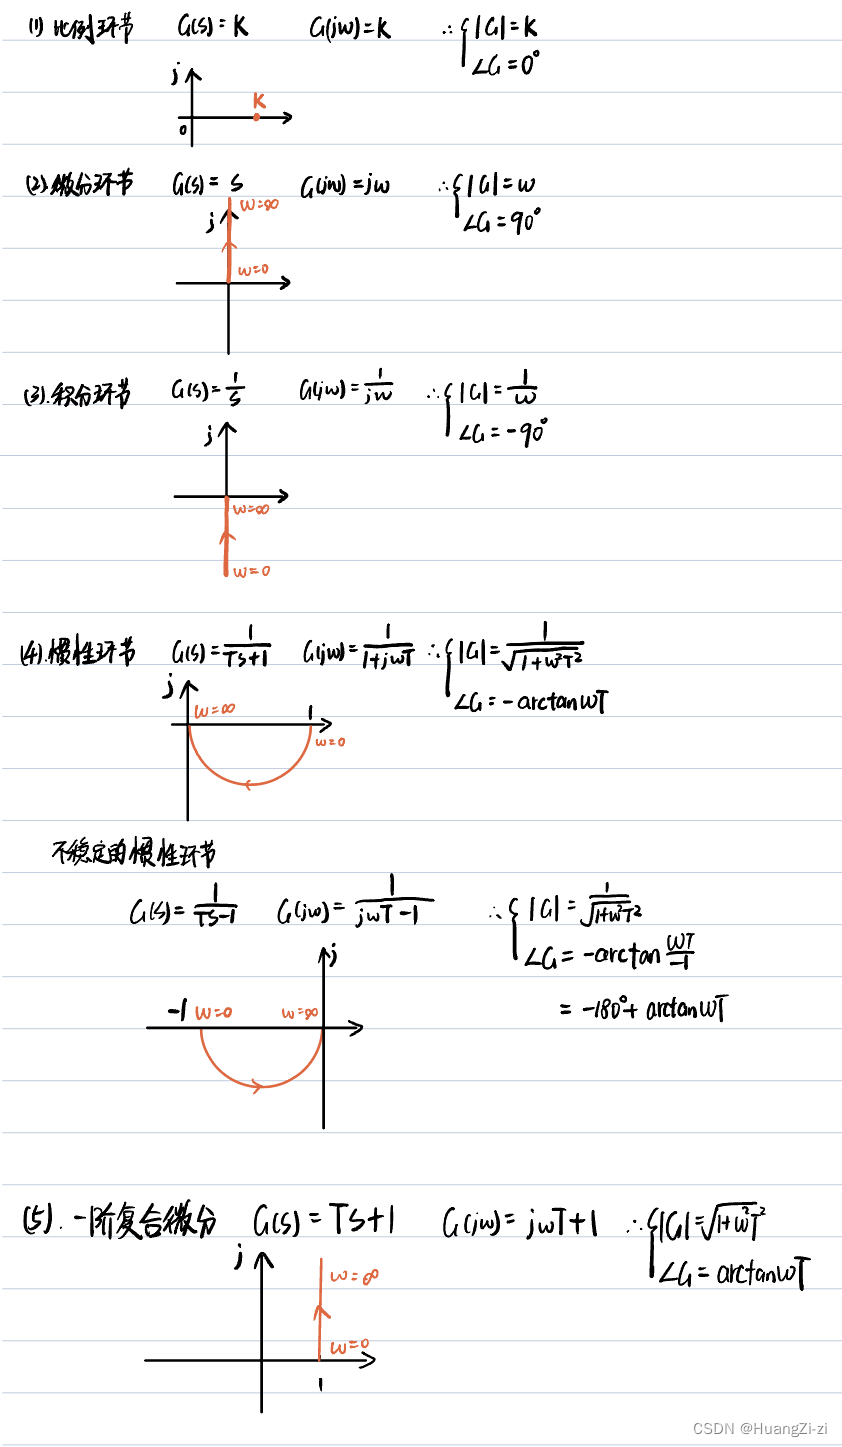 (1) 比例环节 G(s)=K G(jw)=K ∴{|G|=K
∠G=0°
j
K
0
(2) 微分环节 G(s)=s G(jw)=jw ∴{|G|=w
w=∞
j ∠G=90°
w=0
(3).积分环节 G(s)=1/s G(jw)=1/jw ∴{|G|=1/w
j ∠G=-90°
w=∞
w=0
(4).惯性环节 G(s)=1/(Ts+1) G(jw)=1/(1+jwT) ∴{|G|=1/√(1+w²T²)
j ∠G=-arctanwT
w=∞ 1
w=0
不稳定的惯性环节
G(s)=1/(Ts-1) G(jw)=1/(jwT-1) ∴{|G|=1/√(1+w²T²)
j ∠G=-arctan wT/-1
-1 w=0 w=∞ =-180°+arctanwT
(5).一阶复合微分 G(s)=Ts+1 G(jw)=jwT+1 ∴{|G|=√(1+w²T²)
j w=∞ ∠G=arctanwT
w=0
1
CSDN @HuangZi-zi